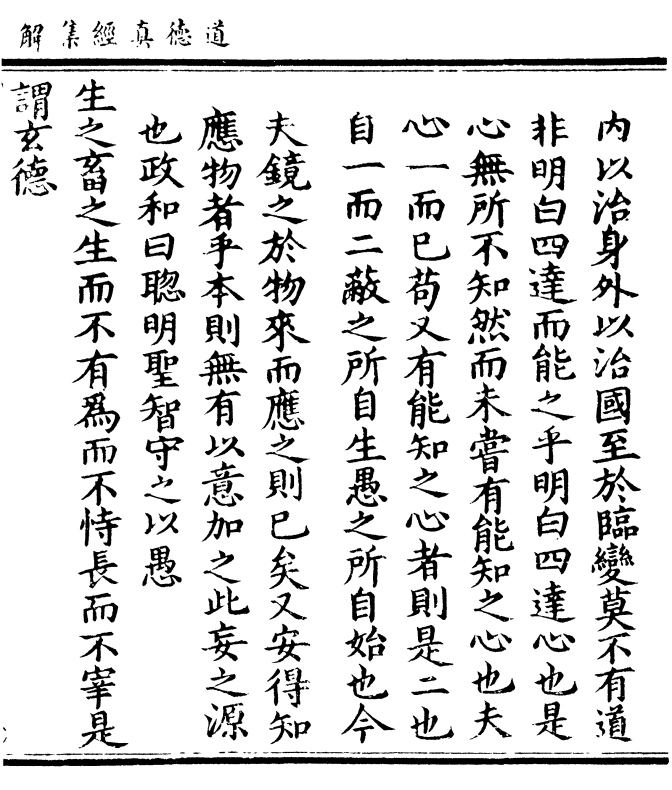 道德真經集解
內以治身外以治國至於臨變莫不有道
非明白四達而能之乎明白四達心也是
心無所不知然而未嘗有能知之心也夫
心一而已苟又有能知之心者則是二也
自一而二蔽之所自生愚之所自始也今
夫鏡之於物來而應之則已矣又安得知
應物者乎本則無有以意加之此妄之源
也政和曰聦明聖智守之以愚
生之畜之生而不有爲而不恃長而不宰是
謂玄德